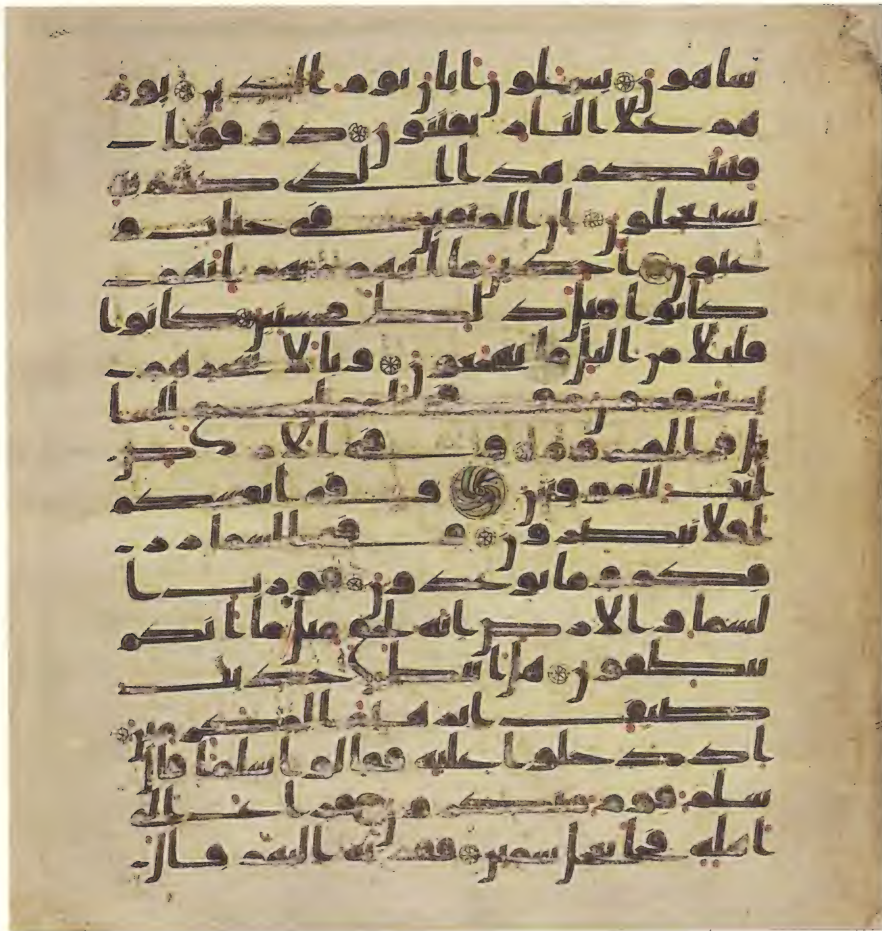 ساهون يسئلون ايان يوم الدين يوم
هم على النار يفتنون ذوقوا
فتنتكم هذا الذي كنتم به
تستعجلون ان المتقين في جنات و
عيون اخذين ما اتيهم ربهم انهم
كانوا قبل ذلك محسنين كانوا
قليلا من اليل ما يهجعون وبالاسحر هم
يستغفرون وفي امولهم حق للسا
ئل والمحروم وفي الارض
ايت للموقنين وفي انفسكم
افلا تبصرون وفي السما ر
زقكم وما توعدون فورب ا
لسما والارض انه لحق مثل ما انكم
تنطقون هل اتيك حديث
ضيف ابرهيم المكرمين
اذ دخلوا عليه فقالوا سلما قال
سلم قوم منكرون فراغ الى
اهله فجا بعجل سمين فقربه اليهم قال